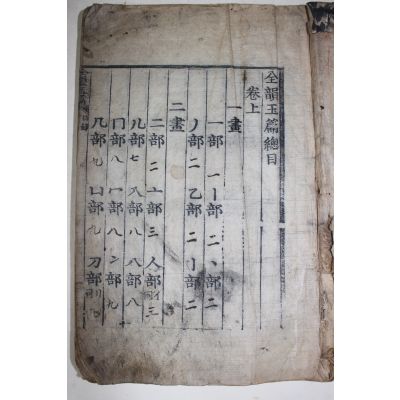 全韻玉篇總目
卷上
一畫
一部 一 丨部 二 丶部 二
丿部 二 乙部 二 亅部 二
二畫
二部 二 亠部 三 人部 亻 三
儿部 七 入部 八 八部 八
冂部 八 冖部 八 冫部 九
几部 九 凵部 九 刀部 刂